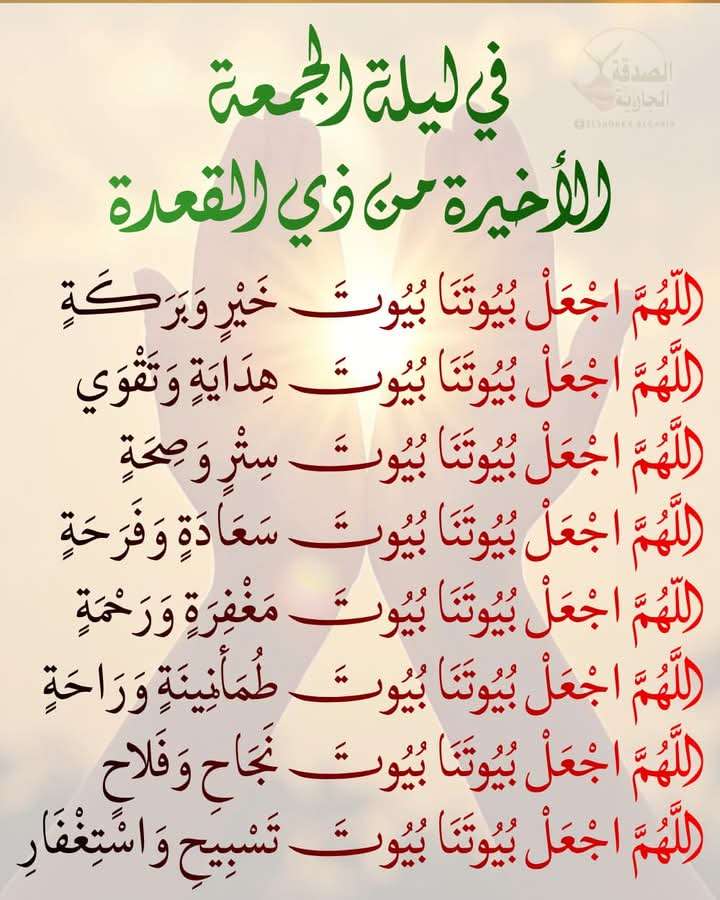 الصدقة
الجارية
في ليلة الجمعة
الأخيرة من ذي القعدة
اللَّهُمَّ اجْعَلْ بُيُوتَنَا بُيُوتَ خَيْرٍ وَبَرَكَةٍ
اللَّهُمَّ اجْعَلْ بُيُوتَنَا بُيُوتَ هِدَايَةٍ وَتَقْوَي
اللَّهُمَّ اجْعَلْ بُيُوتَنَا بُيُوتَ سِتْرٍ وَصِحَةٍ
اللَّهُمَّ اجْعَلْ بُيُوتَنَا بُيُوتَ سَعَادَةٍ وَفَرَحَةٍ
اللَّهُمَّ اجْعَلْ بُيُوتَنَا بُيُوتَ مَغْفِرَةٍ وَرَحْمَةٍ
اللَّهُمَّ اجْعَلْ بُيُوتَنَا بُيُوتَ طُمَأنِينَةٍ وَرَاحَةٍ
اللَّهُمَّ اجْعَلْ بُيُوتَنَا بُيُوتَ نَجَاحٍ وَفَلاحٍ
اللَّهُمَّ اجْعَلْ بُيُوتَنَا بُيُوتَ تَسْبِيحِ وَاسْتِغْفَارِ